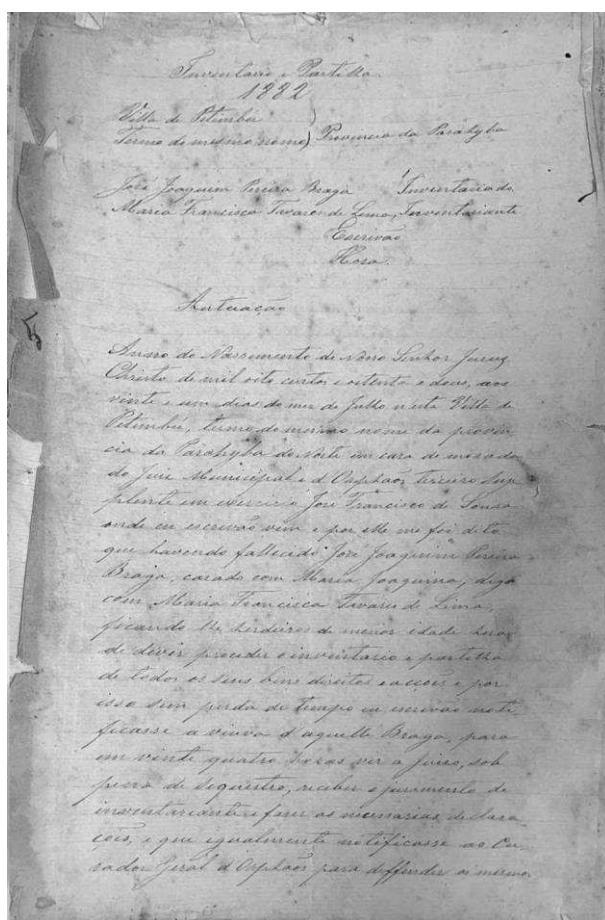 Inventario e Partilha
1882
Villa de Pitimbu
Termo do mesmo nome } Provincia da Parahyba
José Joaquim Pereira Braga Inventariado
Maria Francisca Tavares de Lima, Inventariante
Escrivão
Autuação
Anno do Nascimento de Nosso Senhor Jesus
Christo de mil oito centos e oitenta e dous, aos
vinte e um dias do mez de Julho n'esta Villa de
Pitimbu, termo do mesmo nome da provin
cia da Parahyba do Norte em casa de morada
do Juis Municipal e d'Orphãos terceiro sup
plente em exercicio José Francisco de Sousa
onde eu escrivão vim e por elle me foi dito
que havendo fallecido José Joaquim Pereira
Braga, casado com Maria Joaquina, digo
com Maria Francisca Tavares de Lima,
ficando lhe herdeiros de menor idade
de devir proceder o inventario e partilha
de todos os seus bens direitos e acções e por
isso sem perda de tempo eu escrivão noti
ficasse a viuva d'aquelle Braga, para
em vinte quatro horas vir a juiso, sob
pena de sequestro, receber o juramento de
inventariante e faser as necessarias declara
ções, e que igualmente notificasse ao Cu
rador Geral d'Orphãos para deffender os mesmos